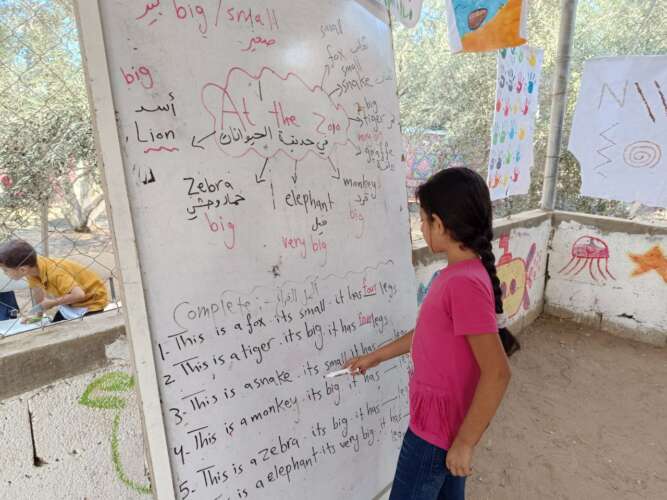 كبير big / small
صغير
small
fox ثعلب
small
snake
big
tiger
big
أسد
Lion
At the Zoo
في حديقة الحيوانات
giraffe
monkey
قرد
big
Zebra
حمار وحشي
big
elephant
فيل
very big
Complete :- أكمل الفراغ
1- This is a fox. its small. it has four legs
2- This is a tiger. its big. it has four legs
3- This is a snake. its small it has __ legs
4- This is a monkey. its big. it has __
5- This is a zebra. its big. it has __ legs
is a elephant. its very big. it has __ legs